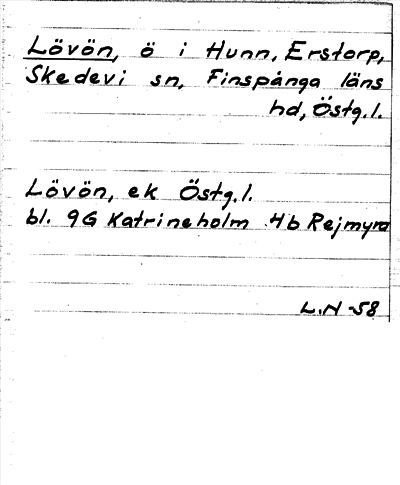 Lövön, ö i Hunn, Erstorp,
Skedevi sn, Finspånga läns
hd, Östg.l.
Lövön, ek Östg.l.
bl. 9G Katrineholm 4b Rejmyra
L.N -58